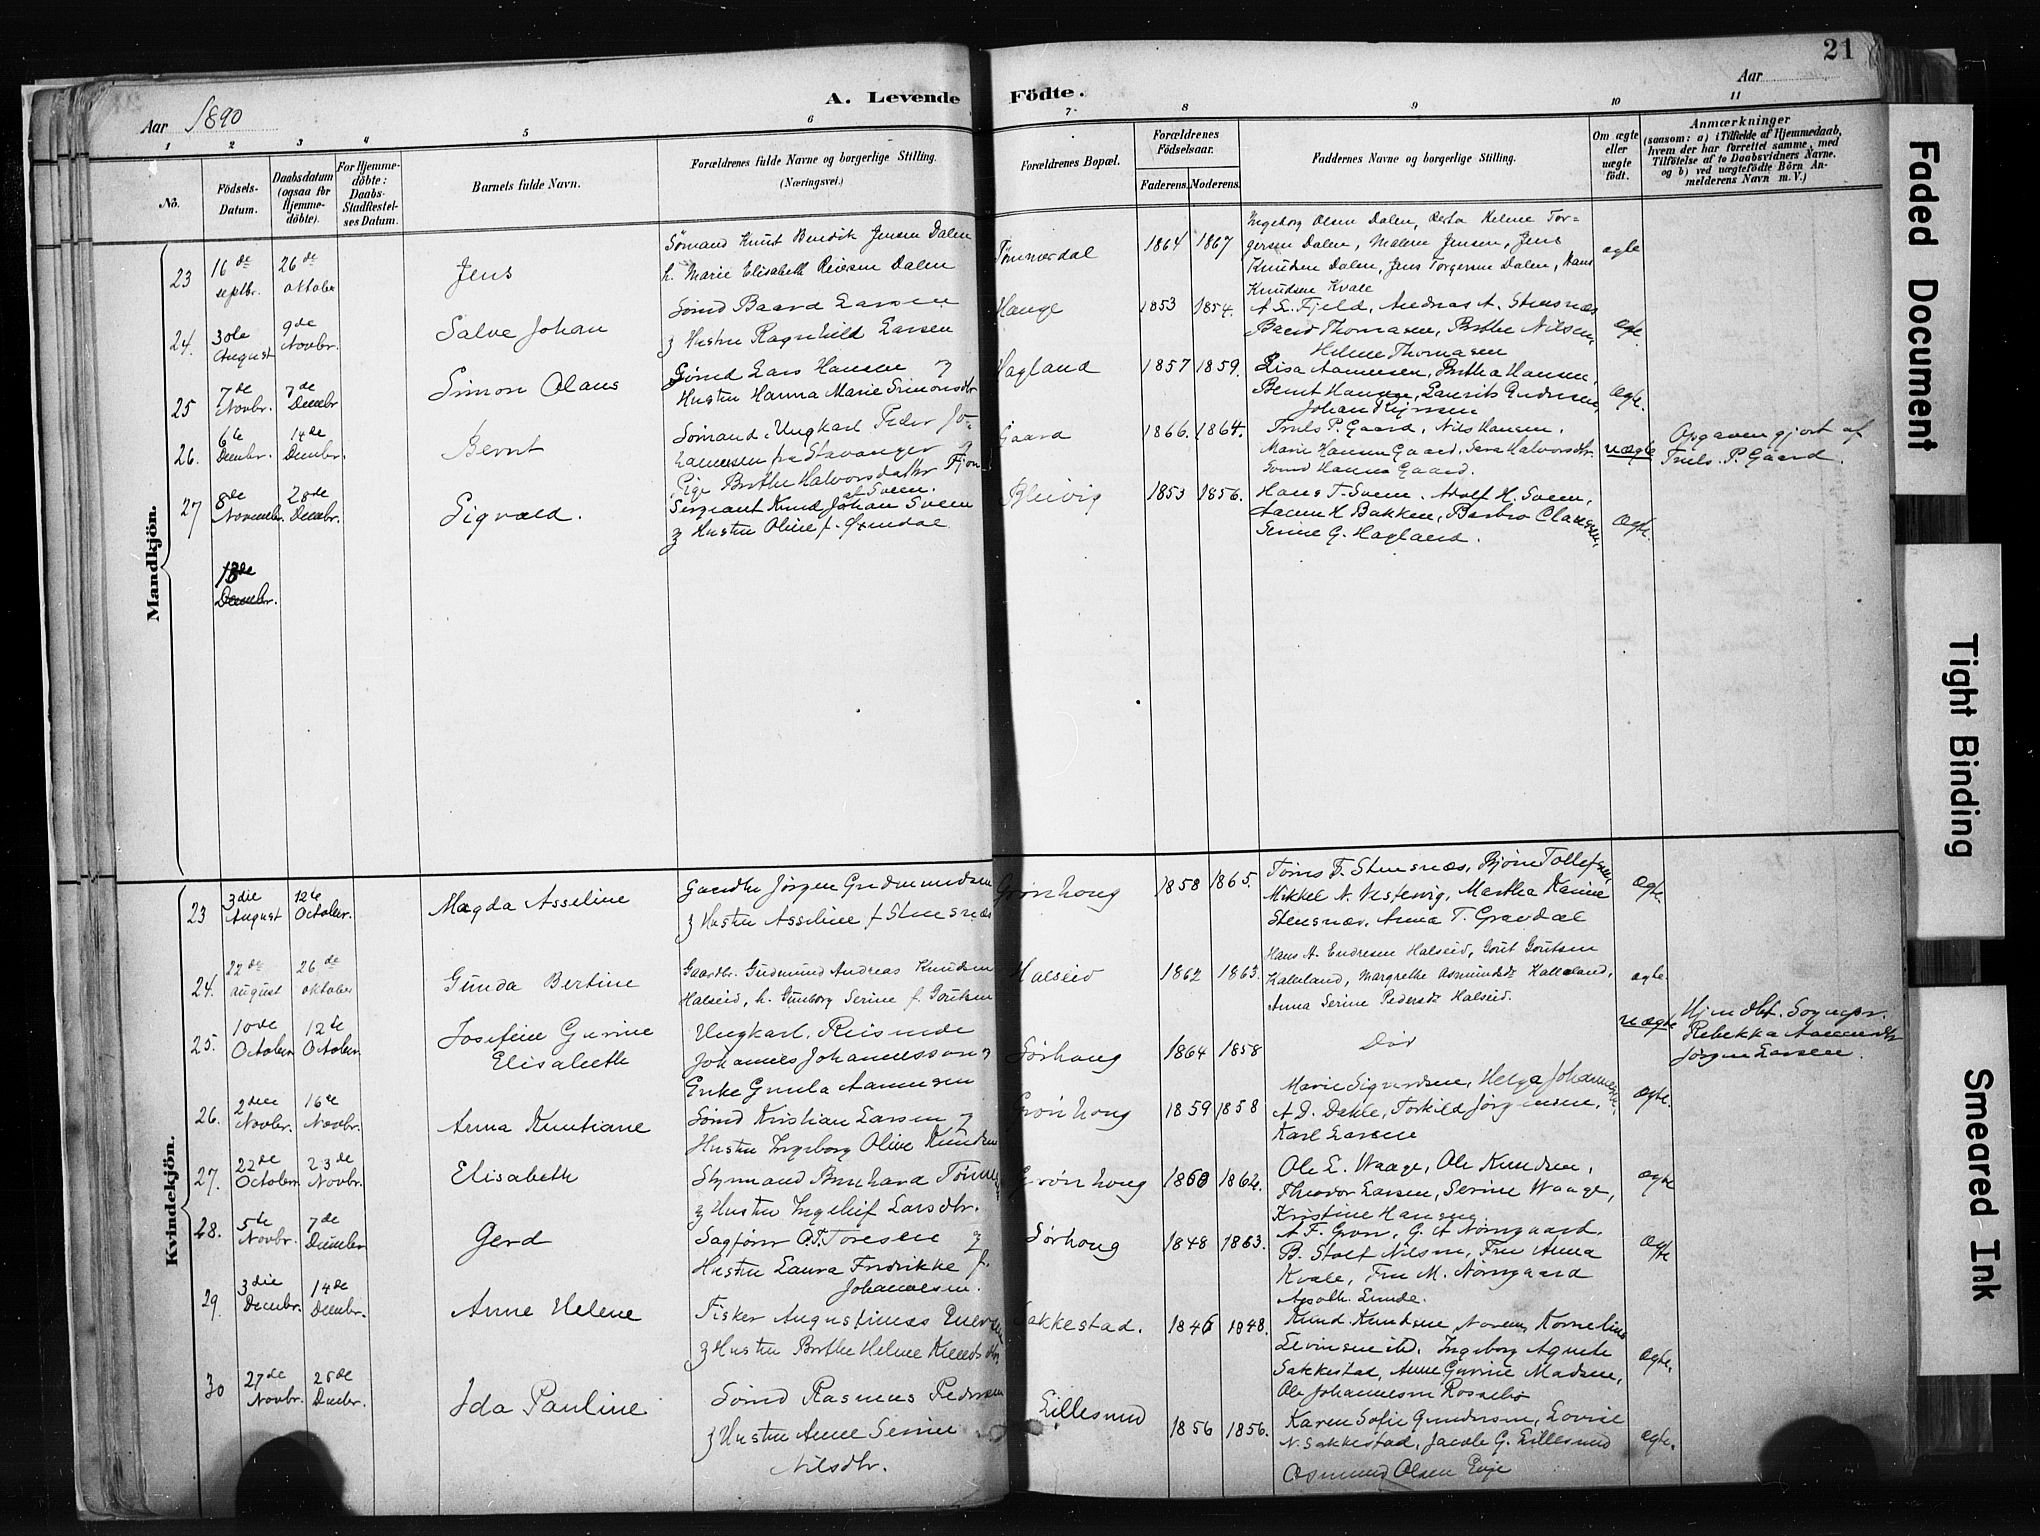 21
Aar 1890
A. Levende Födte.
Aar
1 2 3 4 5 6 7 8 9 10 11
No.
Födsels-
Datum.
Daabsdatum
(ogsaa for
Hjemme-
döbte).
For Hjemme-
döbte:
Daabs-
Stadfæstel-
ses Datum.
Barnets fulde Navn.
Forældrenes fulde Navne og borgerlige Stilling.
(Næringsvei.)
Forældrenes Bopæl.
Forældrenes
Födselsaar.
Faderens. Moderens.
Faddernes Navne og borgerlige Stilling.
Om ægte
eller
uægte
födt.
Anmærkninger
(saasom: a) i Tilfælde af Hjemmedaab,
hvem der har forrettet samme, med
Tilföielse af to Daabsvidners Navne,
og b) ved uægtefödte Börn An-
melderens Navn m. V.)
Mandkjön.
23 16de septbr. 26de oktober Jens
Sömand Knut Bendik Jensen Dalen
h. Marie Elisabeth Dalen
Tömmerdal 1864 1867
Ingeborg Olsen Dalen, Berta Helene Tor=
gersen Dalen, Malene Jensen, Jens
Knudsen Dalen, Jens Torgersen Dalen, Hans
Knudsen Kvale
ægte
24. 30te August 9de Novbr. Salve Johan
Sömd Baard Larsen
& Hustru Ragnhild Larsen
Hauge 1853 1854.
A. L. Fjeld, Andreas A. Stensnæs
Baard Thomasen, Brithe Nilsen,
Helene Thomasen
Ægte
25 7de Novbr. 7de Decembr Simon Olaus
Sömd Lars Hansen &
Hustru Hanna Marie Simonsdtr
Hagland 1857 1859.
Lisa Aamunsen, Bertha Hansen,
Bernt Hansen, Laurits Gudersen,
Johan
Ægte.
26. 6te Decmbr. 14de Decmbr. Bernt
Sömand, Ungkarl Peder Jo-
hannessen fra Stavanger &
Pige Brithe Halvorsdatter Fjon
Gaard 1866. 1864.
Truls P. Gaard, Nils Hansen,
Marie Hansen Gaard, Sara Halvorsdtr.
Svend Hansen Gaard.
uægte
Opgaven gjort af
Truls. P. Gaard.
27 8de November 28de Decbr. Sigvald.
af Sveen.
Sergeant Knud Johan Sveen
& Hustru Oline f. Grindal
Bleivig 1853 1856.
Hans T. Sveen, Adolf H. Sveen,
Aanen H Bakken, Barbro Clausen,
Serine G. Hagland.
Ægte.
13de
Decmbr.
Kvindekjön.
23 3die August 12te October. Magda Asseline
Gaardbr Jörgen Gudmundsen
& Hustru Asseline f Stensnæs
Grönhoug 1858 1865.
Töms T. Stensnæs, Björn Tollefsen,
Mikkel N. Vestervig, Martha Karine
Stensnæs, Anna T. Gravdal
Ægte
24. 22de august 26de oktober Gunda Bertine
Gaardbr. Gudmund Andreas Knudsen
Halseid, h. Gunborg Serine f. Goutsen
Halseid 1862 1863.
Hans A. Endresen Halseid, Gout Goutsen
Kalleland, Margrethe Asmundsdt Kalleland,
Anna Serine Pedersdt Halseid.
ægte.
25. 10de October 12te October. Josefine Gurine
Elisabeth
Ungkarl, Reisende
Johannes Johannesson &
Enke Gunla Aanensen
Sörhoug 1864 1858
Död
uægte
Hjemdbt. Sognepr.
Rebekka
Jörgen Larsen.
26. 2den Novbr. 16de Novbr. Anna Knutiane
Sömd Kristian Larsen &
Hustru Ingeborg Oline Knudsen
Grönhoug 1859 1858
Marie Sigurdsen, Helga Johannesen
A. D. Dahle, Torkild Jörgensen,
Karl Larsen
Ægte.
27. 22de October 23de Novbr. Elisabeth
Styrmand Bernhard
& Hustru Ingeleif Larsdtr.
Grönhoug 1860 1864.
Ole L. Waage, Ole Knudsen,
Theodor Larsen, Serine Waage,
Kristine Hansen
Ægte
28. 5te Novbr. 7de December Gerd
Sagförer O. T. Toresen &
Hustru Laura Fredrikke f.
Johannesen.
Sörhoug 1848 1863.
A. F. Gron, G. A Nörregaard
B. Stolt Nilsen, Fru Anna
Kvale, Fru M. Nörregaard
Apoth. Lunde.
Ægte
29. 3die Decmbr. 14de Decmbr. Anne Helene
Fisker Augustinus
& Hustru Brithe Helene Knudsdtr
Sakkestad. 1846 1848.
Knud Knudsen, Kornelius
Levinsen ibd. Ingeborg Agnete
Sakkestad, Anne Gurine Madsen,
Ole Johannesen Rossebö
Ægte.
30 27de Novbr. 26de Decbr. Ida Pauline
Sömd Rasmus Pedersen
& Hustru Anne Serine
Nilsdtr.
Lillesund 1856 1856.
Karen Sofie Gundersen, Lovise
N. Sakkestad, Jacob G. Lillesund
Osmund Olsen Eije
ægte.
Faded Document
Tight Binding
Smeared Ink